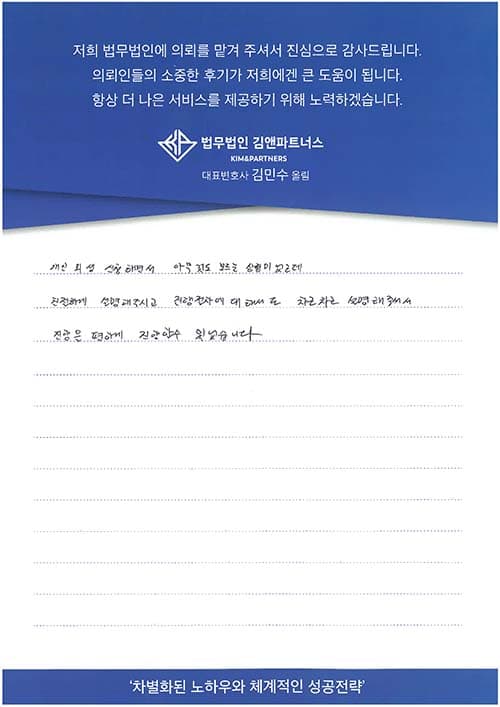 저희 법무법인에 의뢰를 맡겨 주셔서 진심으로 감사드립니다.
의뢰인들의 소중한 후기가 저희에겐 큰 도움이 됩니다.
항상 더 나은 서비스를 제공하기 위해 노력하겠습니다.
법무법인 김앤파트너스
KIM&PARTNERS
대표변호사 김민수 올림
개인 회생 신청 하면서 아무것도 모르는 상황이었는데
친절하게 설명해주시고 진행절차에 대해서도 차근차근 설명해주셔서
편하게 진행할수 있었습니다
'차별화된 노하우와 체계적인 성공전략'